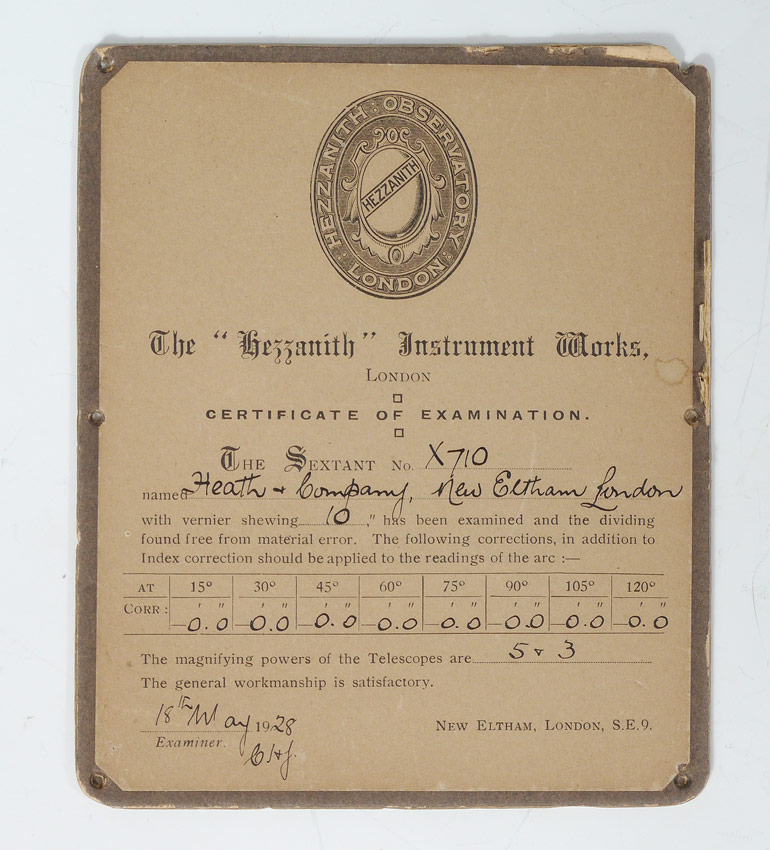 HEZZANITH : OBSERVATORY : LONDON :
HEZZANITH
The "Hezzanith" Instrument Works,
LONDON
CERTIFICATE OF EXAMINATION.
THE SEXTANT No. X710
named Heath & Company, New Eltham London
with vernier shewing 10 ," has been examined and the dividing
found free from material error. The following corrections, in addition to
Index correction should be applied to the readings of the arc :—
AT 15° 30° 45° 60° 75° 90° 105° 120°
CORR : ' " ' " ' " ' " ' " ' " ' " ' "
—0.0 —0.0 —0.0 —0.0 —0.0 —0.0 —0.0 —0.0
The magnifying powers of the Telescopes are 5 & 3
The general workmanship is satisfactory.
18th May 1928
NEW ELTHAM, LONDON, S.E.9.
Examiner.